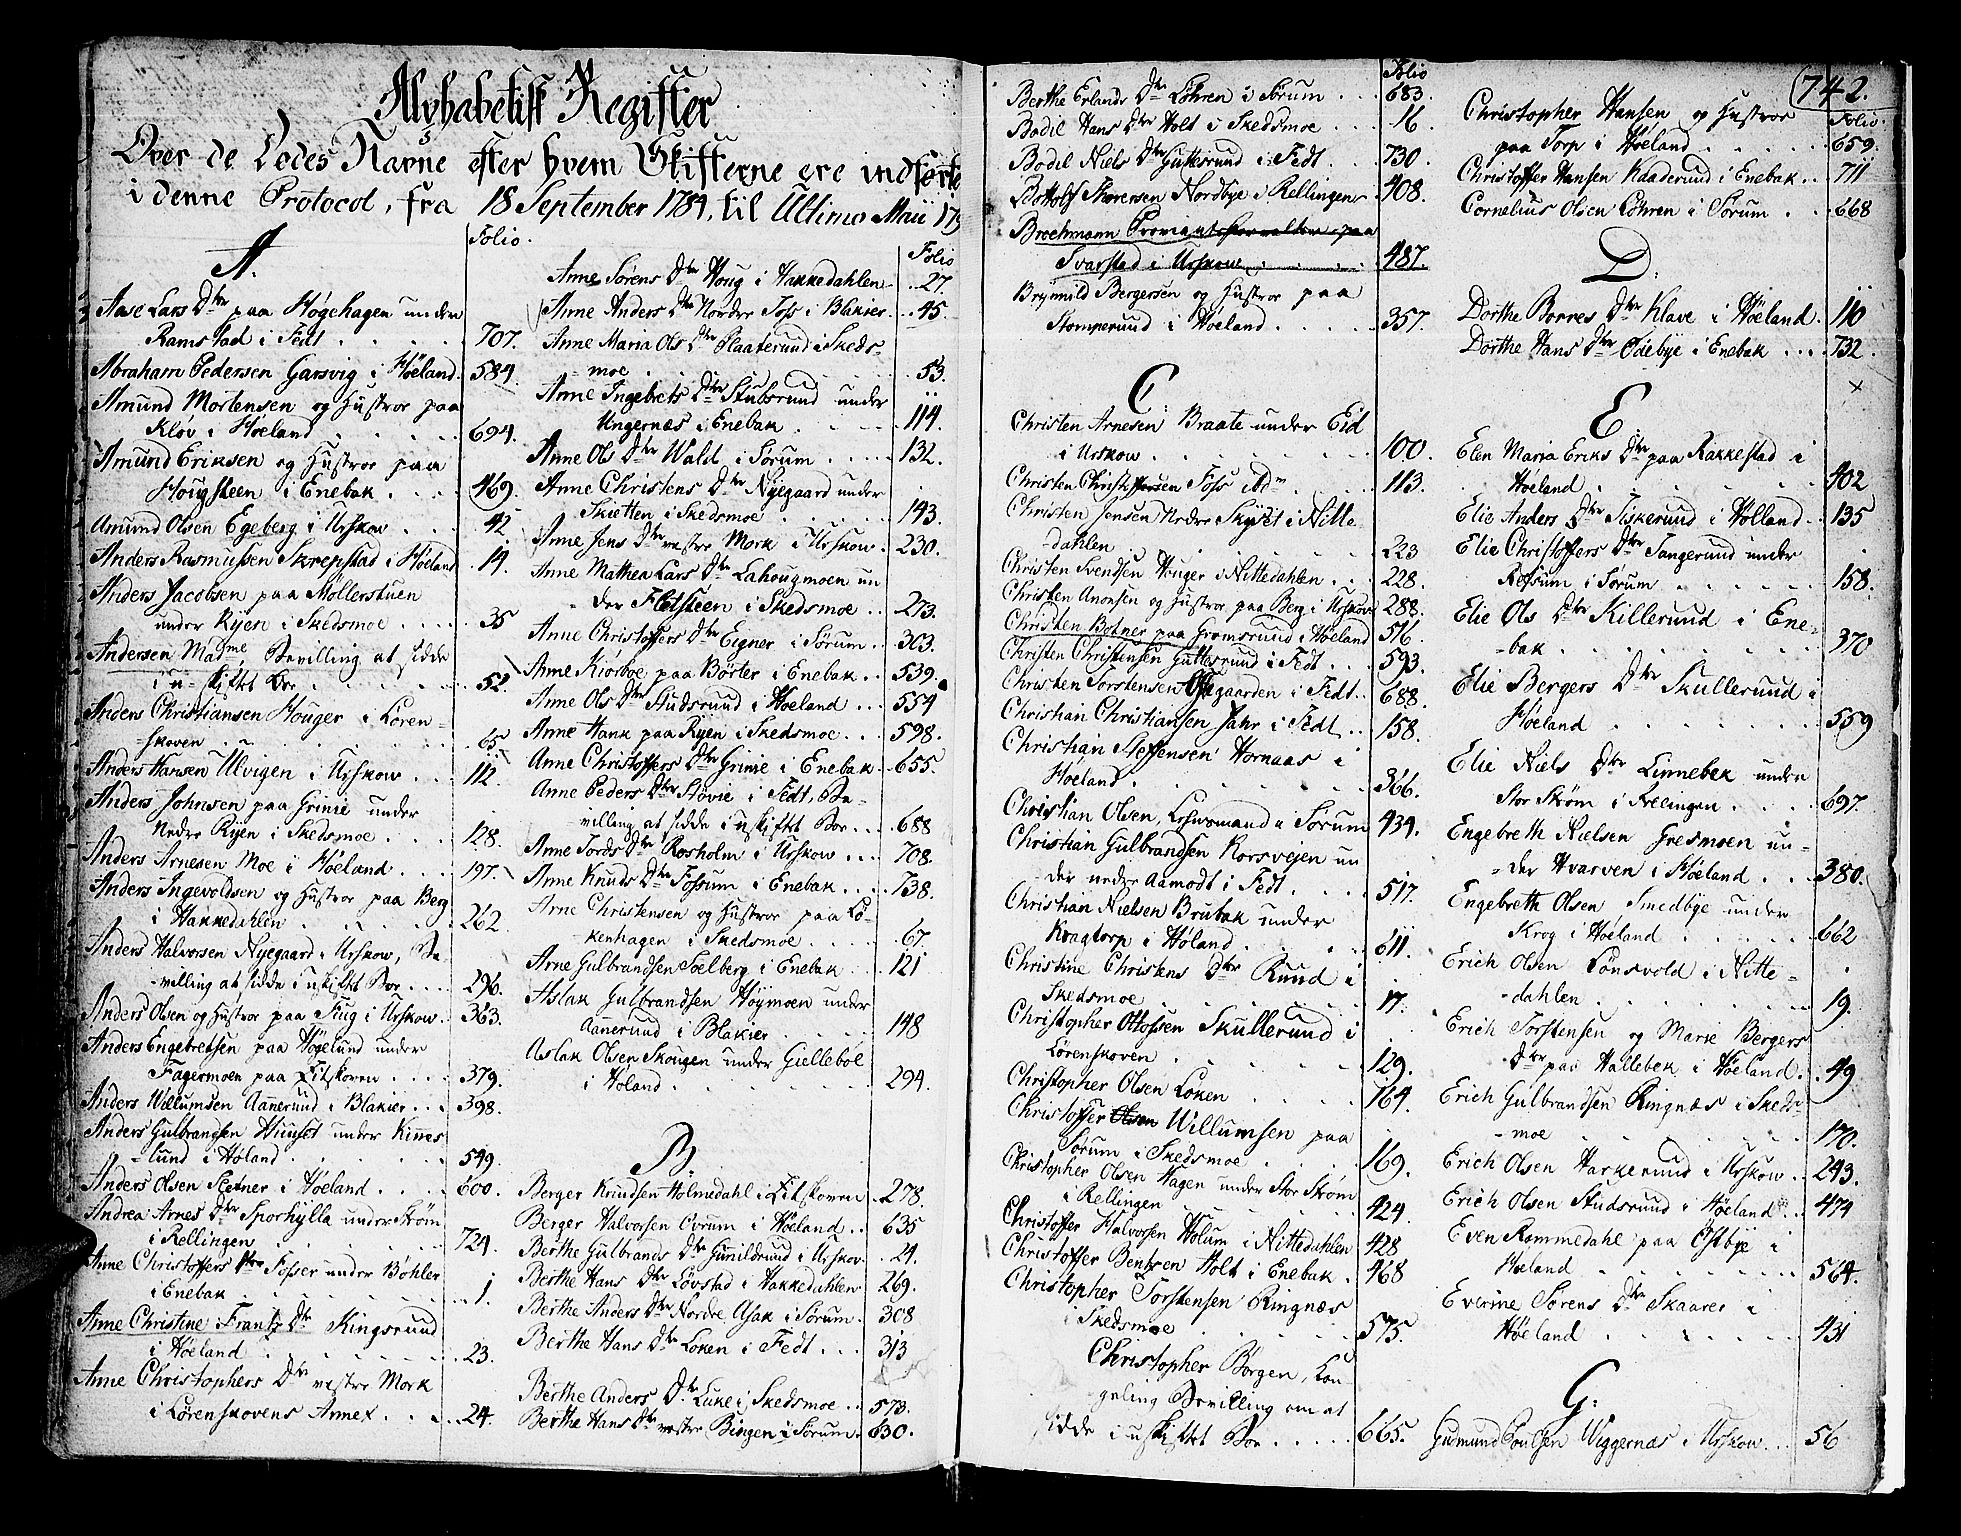 Alphabetisk Register
Over de Dødes Navne efter hvem Skifterne ere indførte
i denne Protocol, fra 18 September 1784, til Ultimo Maii 17
A.
Folio.
Aase Lars Dtr paa Høgehagen under
Ramstad i Fedt . . . 707.
Abraham Pedersen Garsvig i Høeland. 584.
Amund Mortensen og Hustroe paa
Kløv i Høeland . . . 694.
Amund Eriksen og Hustroe paa
Hougsteen i Enebak . . . 469.
Amund Olsen Egeberg i Urskow . . 42.
Anders Rasmussen Skrepstad i Høeland 14.
Anders Jacobsen paa Møllerstuen
under Ryen i Skedsmoe . . . 35
Andersen Madme, Bevilling at sidde
i u-skiftet Boe . . . 52.
Anders Christiansen Houger i Loren-
-skoven . . . 65
Anders Hansen Ulvigen i Urskow . . . 112.
Anders Johnsen paa Grinie under
Nedre Ryen i Skedsmoe . . . 128.
Anders Arnesen Moe i Høeland . . . 197.
Anders Ingevoldsen og Hustroe paa Berg
i Hakkedahlen . . . 262.
Anders Halvorsen Nyegaard i Urskow, Be-
-villing at sidde i uskiftet Boe . . . 296.
Anders Olsen og Hustroe paa Hug i Urskow. 363.
Anders Engebretsen paa Høgelund under
Fagermoen paa Fitskoven . . . 379.
Anders Willumsen Aannerud i Blakier . . . 398.
Anders Gulbrandsen Huuset under Kinnes
-lund i Høland . . . 549.
Anders Olsen Sletner i Høeland . . . 600.
Andrea Arnes Dtr Sporhylla under Strøm
i Rellingen . . . 724.
Anne Christoffers Dtr Fosser under Bøhler
i Enebak . . . 1.
Anne Christine Frantz Dtr Kingsrund
i Høeland . . . 23.
Anne Christophers Dtr vestre Mork
i Lørenskovens Annex . . . 24.
Folio
Anne Sørens Dtr Houg i Hakkedahlen . . 27.
Anne Anders Dtr Nordre Foss i Blakier . . 45.
Anne Maria Ols Dtr Plaaterund i Skeds-
-moe . . . 53.
Anne Ingebrets Dtr Stubsrund under
Ungernæs i Enebak . . . 114.
Anne Ols Dtr Wald i Sørum . . . 132.
Anne Christens Dtr Nyegaard under
Skietten i Skedsmoe . . . 143.
Anne Jens Dtr vestre Mork i Urskow. 230.
Anne Mathea Lars Dtr Lahougmoen un
der Flotsteen i Skedsmoe . . 273.
Anne Christoffers Dtr Eigner i Sørum . . 303.
Anne Kiørboe paa Børter i Enebak . . 539.
Anne Ols Dtr Studsrund i Høeland . . . 554
Anne Hank paa Ryen i Skedsmoe . . . 598.
Anne Christoffers Dtr Grinie i Enebak . . 655.
Anne Peders Dtr Støvie i Fedt, Be-
-villing at sidde i uskiftet Boe . . . 688
Anne Tords Dtr Rosholm i Urskow . . . 708.
Anne Knuds Dtr Fossum i Enebak . . . 738.
Arne Christensen og Hustroe paa Lø-
-kenhagen i Skedsmoe . . . 67.
Arne Gulbrandsen Soelberg i Enebak . . . 121
Aslak Gulbrandsen Høymoen under
Aannerund i Blakier . . . 148
Aslak Olsen Skougen under Gielleböl
i Høland . . . 294.
B.
Berger Knudsen Holmedahl i Fitskoven . 278.
Berger Halvorsen Ovrum i Høeland . . 635
Berthe Gulbrands Dtr Gunildrund i Urskov . 24.
Berthe Hans Dtr Løvstad i Hakkedahlen 269.
Berthe Anders Dtr Nordre Asak i Sørum . 308
Berthe Hans Dtr Loken i Fedt . . . 313
Berthe Anders Dtr Luke i Skedsmoe . . 573.
Berthe Hans Dtr vestre Bingen i Sørum. 630.
Folio
Berthe Erlands Dtr Løhren i Sørum . . . 683.
Bodil Hans Dtr Holt i Skedsmoe . . . 16.
Bodil Niels Dtr Guttesrund i Fedt . . . 730.
Bottolf Thoresen Nordbye i Rellingen 408.
Brochmann Proviantsforvalter paa
Svarstad i Urskow . . . 487.
Brynnild Bergersen og Hustroe paa
Stomperund i Høeland . . . 357.
C.
Christen Arnesen Braate under Eid
i Urskow . . . 100.
Christen Christoffersen Foss ibdm . . . 113.
Christen Jensen Nedre Skyset i Nitte-
-dahlen . . . 223
Christen Svendsen Houger i Nittedahlen . . . 228.
Christen Anonsen og Hustroe paa Berg i Urskov 288.
Christen Botner paa Gromsrund i Høeland 516.
Christen Christensen Guttesrund i Fedt . . . 593.
Christen Torstensen Ovregaarden i Fedt . . 688.
Christian Christiansen Jahr i Fedt . . 158.
Christian Steffensen Hornaas i
Høeland . . . 366.
Christian Olsen, Lehnsmand i Sørum 434.
Christian Gulbrandsen Korsvejen un
-der nedre Aamodt i Fedt . . . 517.
Christian Nielsen Brubak under
Kragtorp i Høland . . . 611.
Christine Christens Dtr Ruud i
Skedsmoe . . . 17.
Christopher Ottossen Skullerund i
Lørenskoven . . . 129.
Christopher Olsen Loken . . . 164.
Christoffer Olsen Willumsen paa
Sørum i Skedsmoe . . . 169.
Christopher Olsen Hagen under Stor Strøm
i Rellingen . . . 424.
Christoffer Halvorsen Holum i Nittedahlen 428
Christoffer Bentsen Holt i Enebak . 468
Christopher Torstensen Ringnæs
i Skedsmoe . . . 575.
Christopher Borgen, Lou-
-geling Bevilling om at
sidde i uskiftet Boe . . . 665.
742.
Folio.
Christopher Hansen og Hustroe
paa Torp i Høeland . . . 659.
Christoffer Hansen Kaaderund i Enebak . . 711
Cornelius Olsen Løhren i Sørum . . . 668
D.
Dorthe Borres Dtr Klave i Høeland . 110
Dorthe Hans Dtr Odebye i Enebak . . . 732.
E
Elen Maria Eriks Dtr paa Rakkestad i
Høeland . . . 402
Elie Anders Dtr Fiskerund i Holland . . 135
Elie Christoffers Dtr Tangerund under
Refsum i Sørum . . . 158.
Elie Ols Dtr Killerund i Ene-
-bak . . . 370
Elie Bergers Dtr Skullerund i
Høeland . . . 559
Elie Niels Dtr Linnebek under
Stor Strøm i Rellingen . . . 697.
Engebreth Nielsen Gresmoen un-
-der Hvarven i Høeland . . . 380.
Engebreth Olsen Smedbye under
Krog i Høeland . . . 662
Erich Olsen Lønsvold i Nitte-
-dahlen . . . 19.
Erich Torstensen og Marie Bergers
Dtr paa Hallebek i Høeland . . 49
Erich Gulbrandsen Ringnæs i Skeds-
-moe . . . 170.
Erich Olsen Harkerund i Urskow . . 243.
Erich Olsen Studsrund i Høeland . . . 474
Even Rommedahl paa Østbye i
Høeland . . . 564.
Everine Sørens Dtr Skaarer i
Høeland . . . 431
G.
Gudmund Poulsen Wiggernæs i Urskow . . . 56